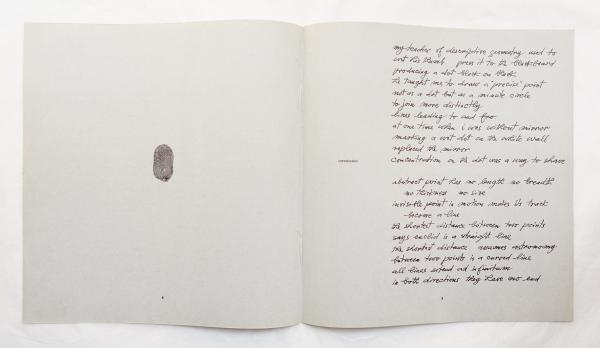 my teacher of descriptive geometry used to
wet his thumb press it to the blackboard
producing a dot black on black
he taught me to draw a "precise" point
not as a dot but as a minute circle
to join more distinctly
lines leading to and fro
at one time when i was without mirror
marking a wet dot on the white wall
replaced the mirror
concentration on the dot was a way to shave
abstract point has no length no breadth
no thickness no size
invisible point in motion makes its track
become a line
the shortest distance between two points
says euclid is a straight line
the shortest distance assumes astronomy
between two points is a curved line
all lines extend ad infinitum
in both directions they have no end